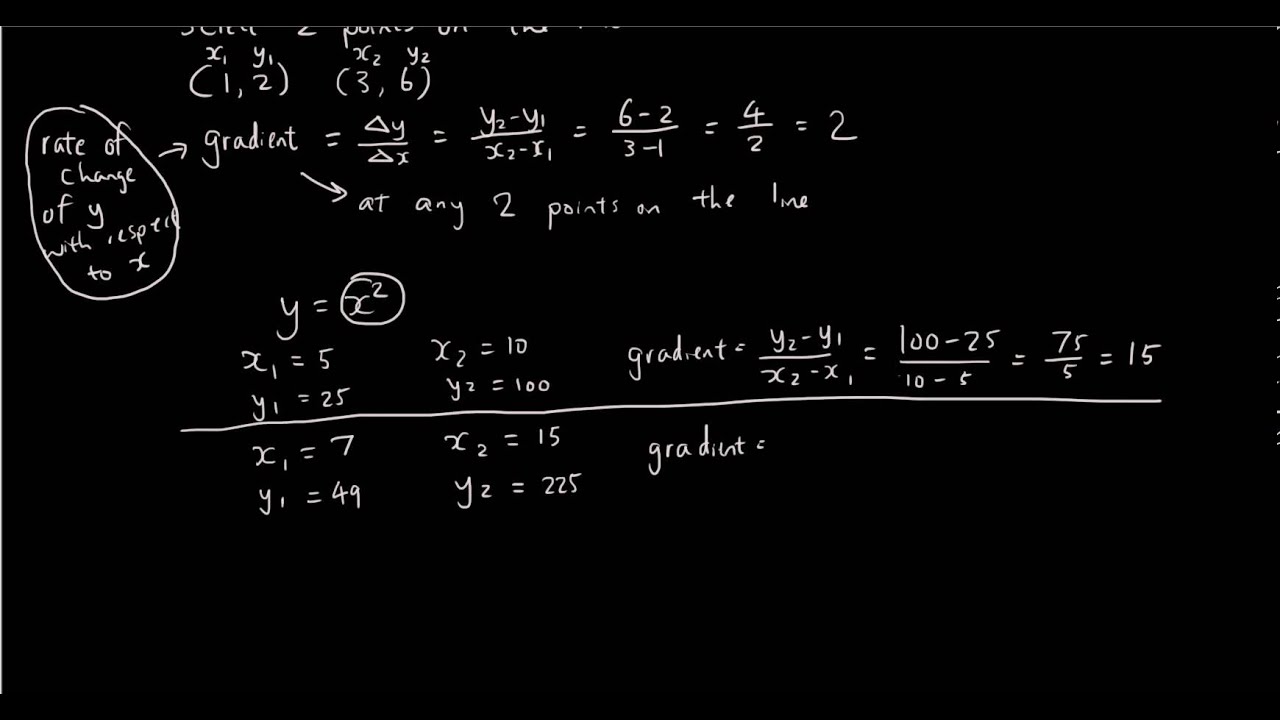 select 2 points on the line
x₁ y₁ x₂ y₂
(1, 2) (3, 6)
rate of change of y with respect to x
→ gradient = Δy/Δx = (y₂-y₁)/(x₂-x₁) = (6-2)/(3-1) = 4/2 = 2
→ at any 2 points on the line
y = x²
x₁ = 5 x₂ = 10 gradient = (y₂-y₁)/(x₂-x₁) = (100-25)/(10-5) = 75/5 = 15
y₁ = 25 y₂ = 100
x₁ = 7 x₂ = 15 gradient =
y₁ = 49 y₂ = 225